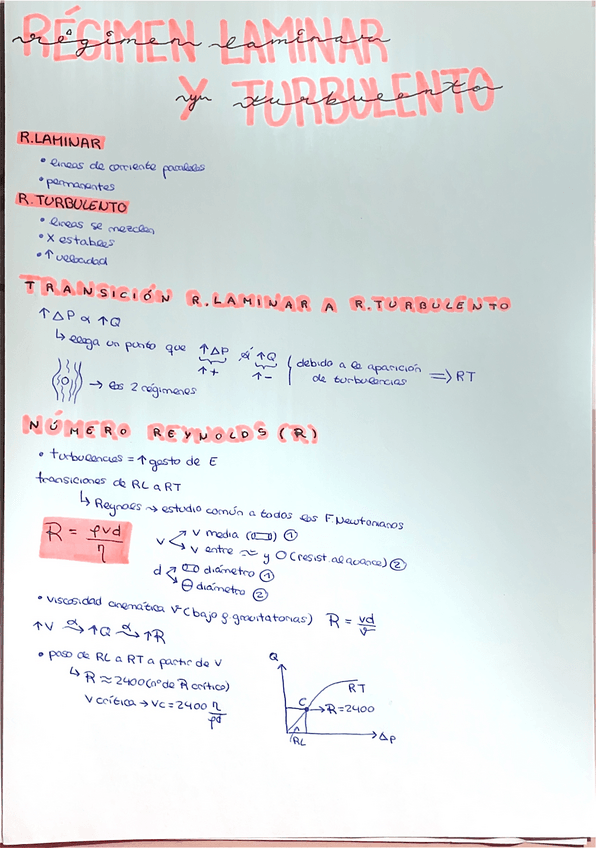 RÉGIMEN LAMINAR
régimen laminar
Y TURBULENTO
y turbulento
R.LAMINAR
• líneas de corriente paralelas
• permanentes
R.TURBULENTO
• líneas se mezclan
• X estables
• ↑ velocidad
TRANSICIÓN R.LAMINAR A R.TURBULENTO
↑ΔP α ↑Q
↳ llega un punto que ↑ΔP α̸ ↑Q debido a la aparición
↑+ ↑- de turbulencias ⇒ RT
→ los 2 regímenes
NÚMERO REYNOLDS (R)
• turbulencias = ↑ gasto de E
transiciones de RL a RT
↳ Reynols → estudio común a todos los F. Newtonianos
R = ρvd/η
v
v media ①
v entre ≈ y O (resist. al avance) ②
d
diámetro ①
diámetro ②
• viscosidad cinemática ν (bajo g gravitatorias) R = vd/ν
↑V α→ ↑Q α→ ↑R
• paso de RL a RT a partir de V
↳ R ≈ 2400 (nº de R crítico)
V crítica → Vc = 2400 η/ρd
Q
RT
C → R=2400
RL
ΔP